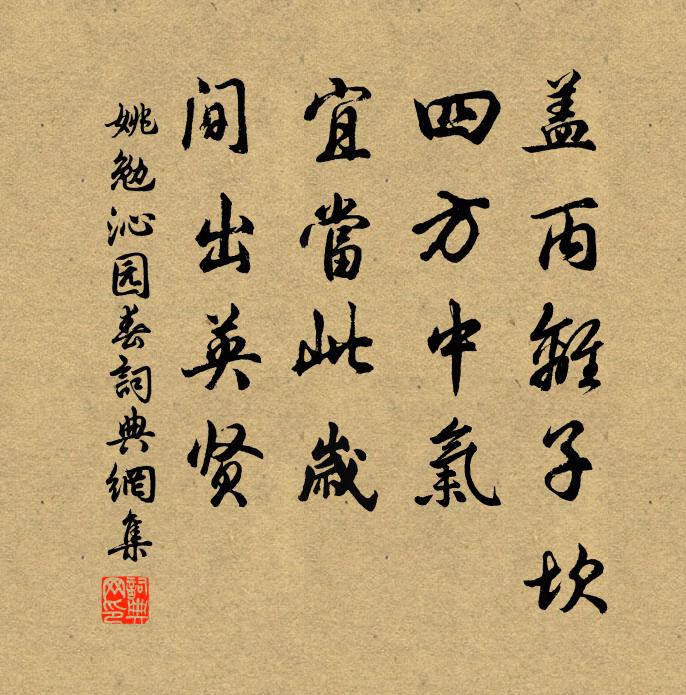 盖丙離子坎
四方中氣
宜當此歲
间出英贤
姚勉沁园春詞典網集
詞典网印